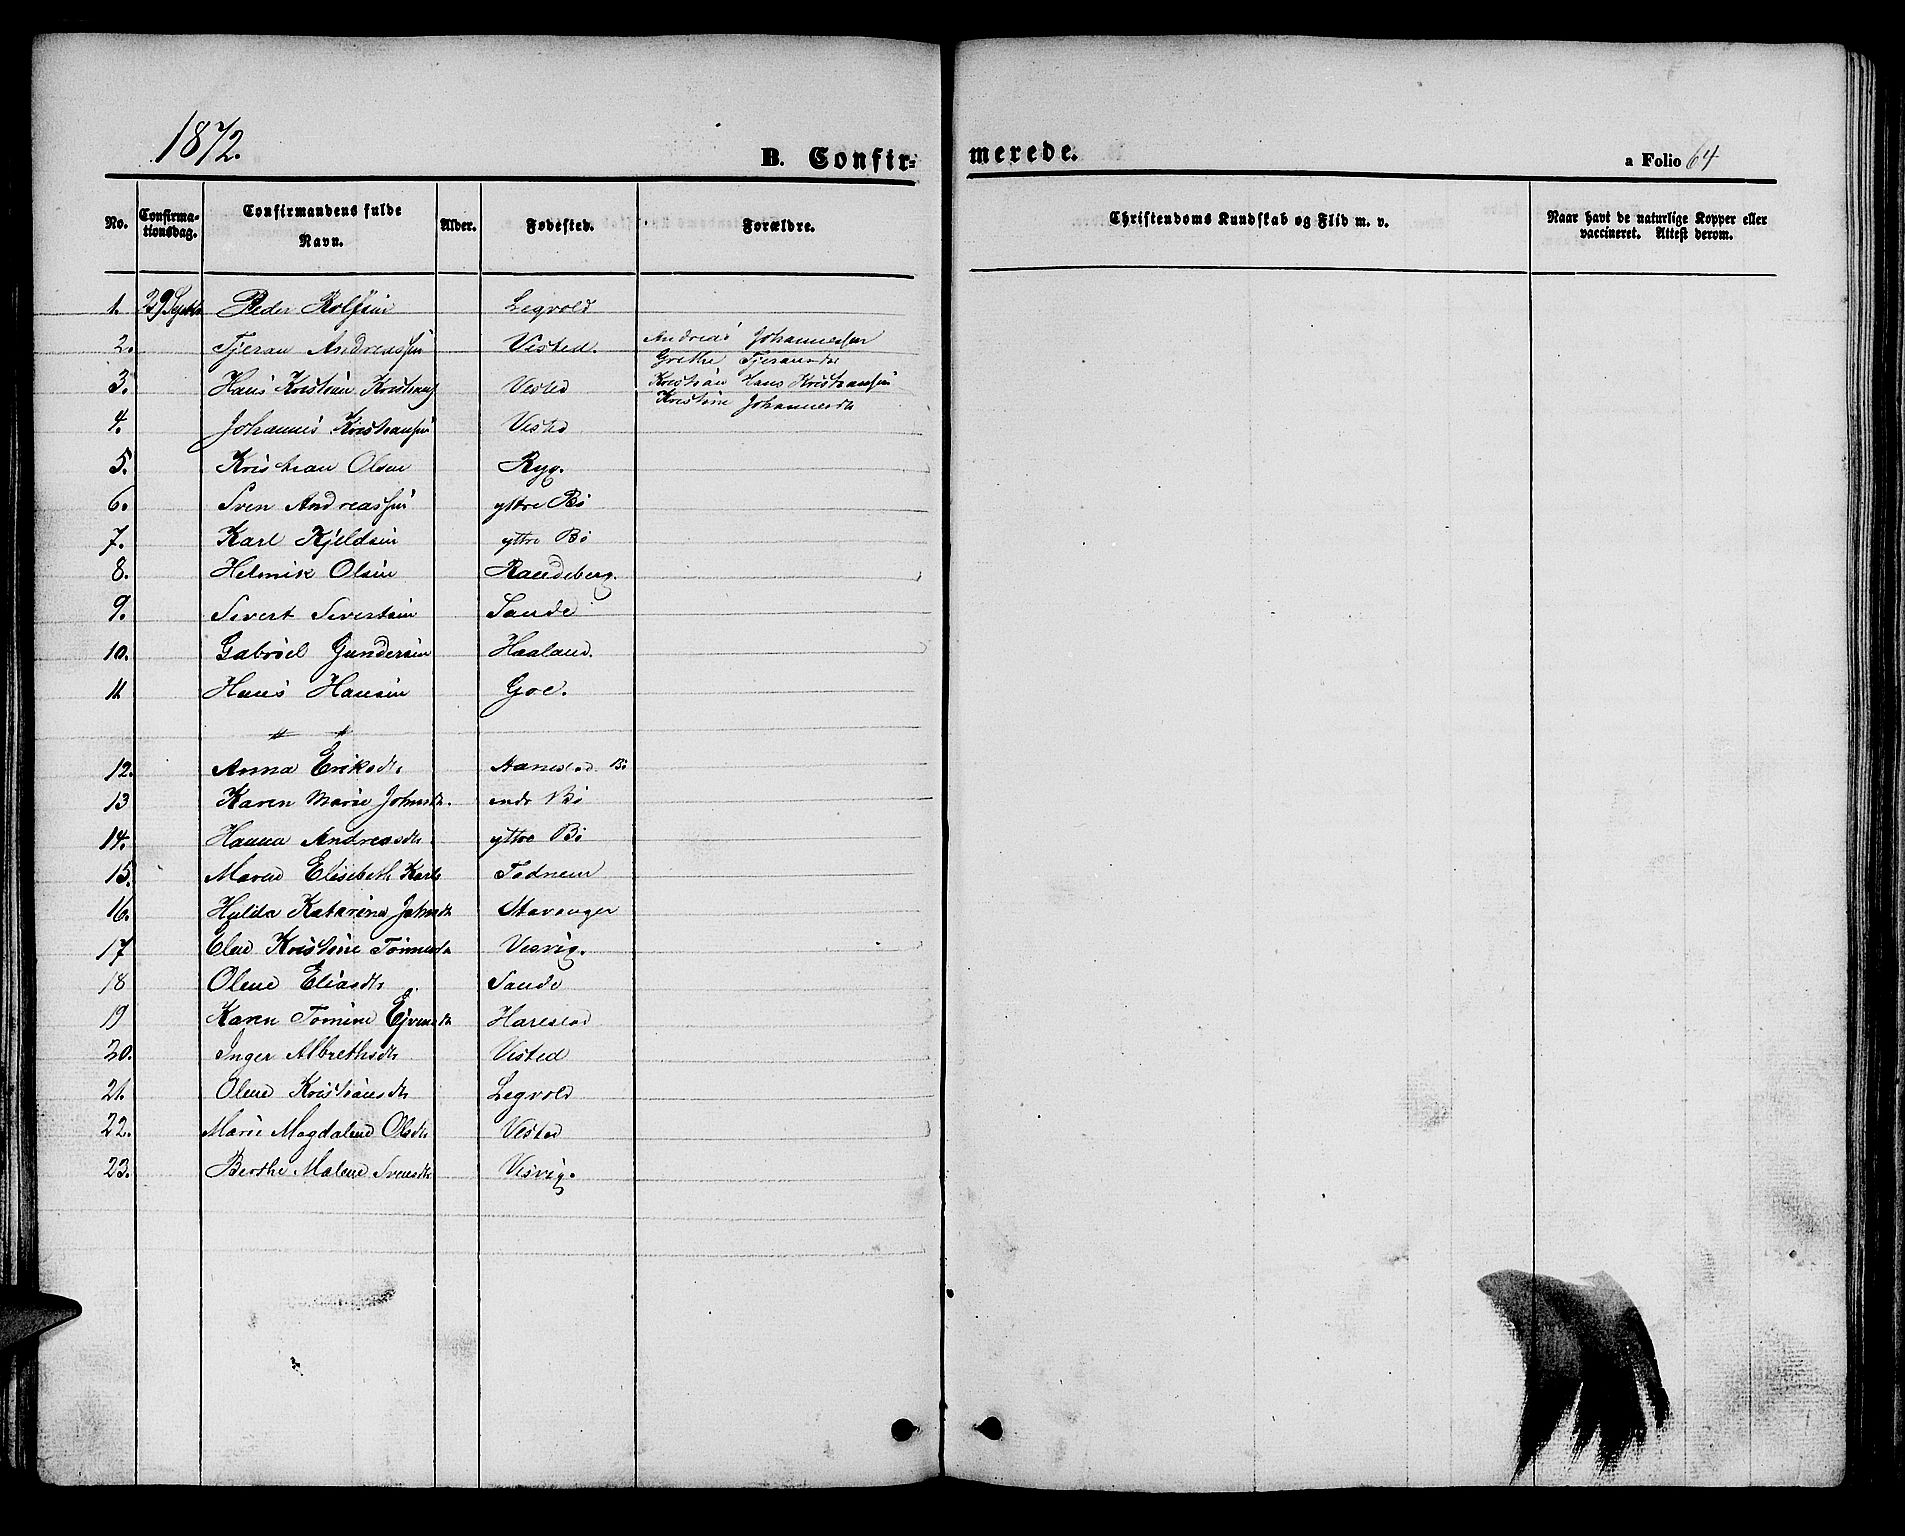 1872.
B. Confir-
merede.
a Folio 64
No.
Confirma-
tionsdag.
Confirmandens fulde
Navn.
Alder.
Fødested.
Forældre.
Christendoms Kundskab og Flid m. v.
Naar havt de naturlige Kopper eller
vaccineret. Attest derom.
1. 29 Septbr Peder Rolfsen Legvold
2. Tjeran Andreassen Visted. Andreas Johannessen
Grethe Tjeransdt
3. Hans Kristian Kristians Visted Kristian Hans Kristiansen
Kristine Johannesdt
4. Johannes Kristiansen Visted
5. Kristian Olsen Ryg.
6. Sven Andreassen yttre Bø
7. Karl Kjeldsen yttre Bø
8. Helmik Olsen Randeberg.
9. Sivert Sivertsen Sande
10. Gabriel Gundersen Haaland.
11 Hans Hansen Goe.
" "
12. Anna Eriksdt. Bø
13 Karen Marie Johnsdt. indr Bø
14. Hanna Andreasdt. yttre Bø
15. Maren Elisebeth Karls Todnem
16. Hulda Katarina Johnsdt Stavanger
17 Elen Kristine Tønnesdt Visvig.
18 Olene Eliasdt. Sande
19 Karen Tomine Ejvensdt Harestad
20. Inger Albrethsdt. Visted
21. Olene Kristiansdt. Legvold
22. Marie Magdalene Olsdt. Visted
23. Berthe Malene Svensdt. Visvig.